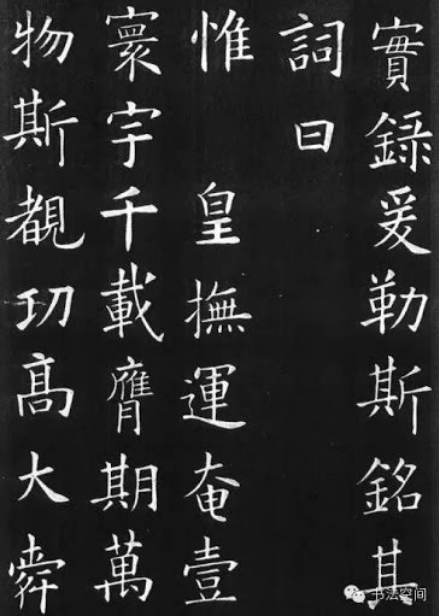 實録爰勒斯銘其
詞曰
惟皇撫運奄壹
寰宇千載膺期萬
物斯覩功高大舜
书法空间